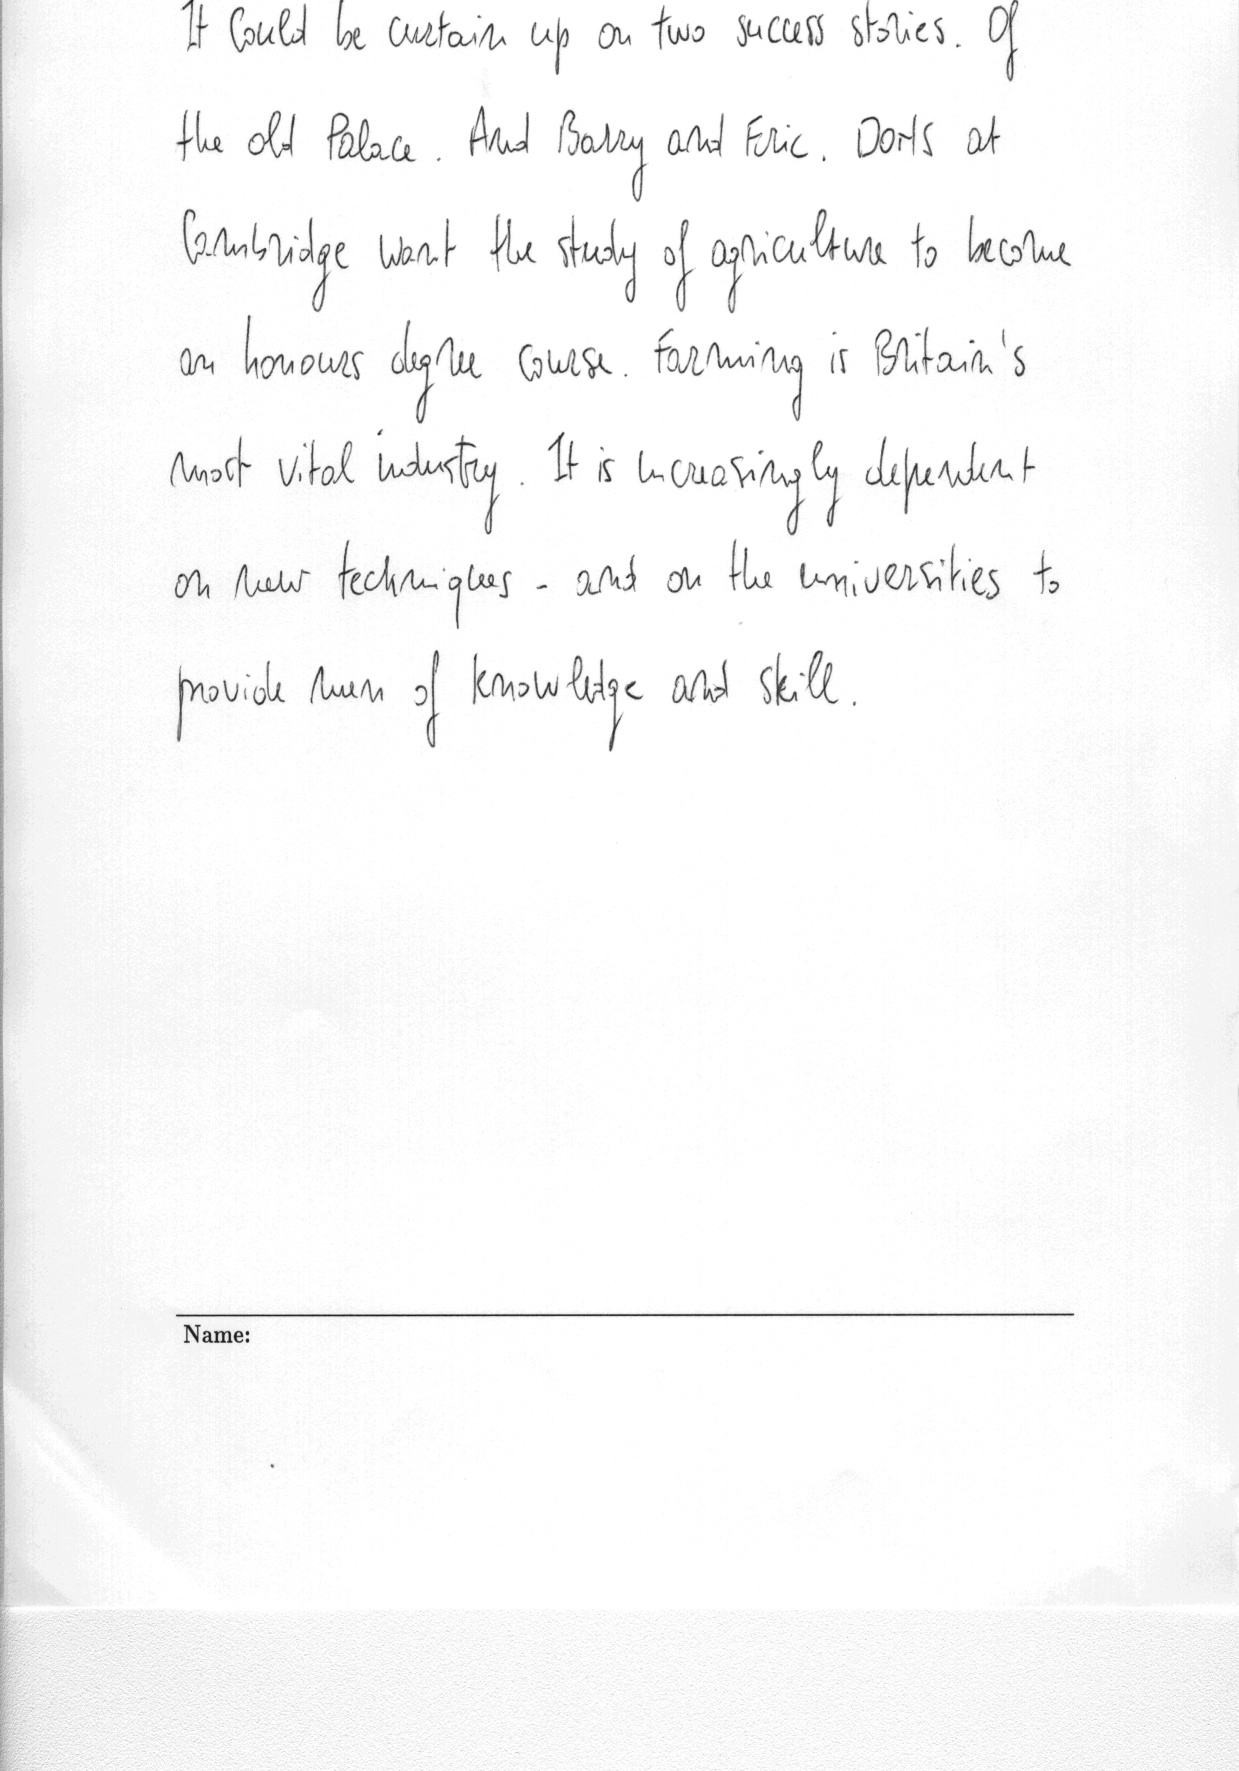 It could be curtain up on two success stories. Of
the old Palace. And Barry and Eric. Dons at
Cambridge want the study of agriculture to become
an honours degree course. Farming is Britain's
most vital industry. It is increasingly dependent
on new techniques - and on the universities to
provide men of knowledge and skill.
Name: